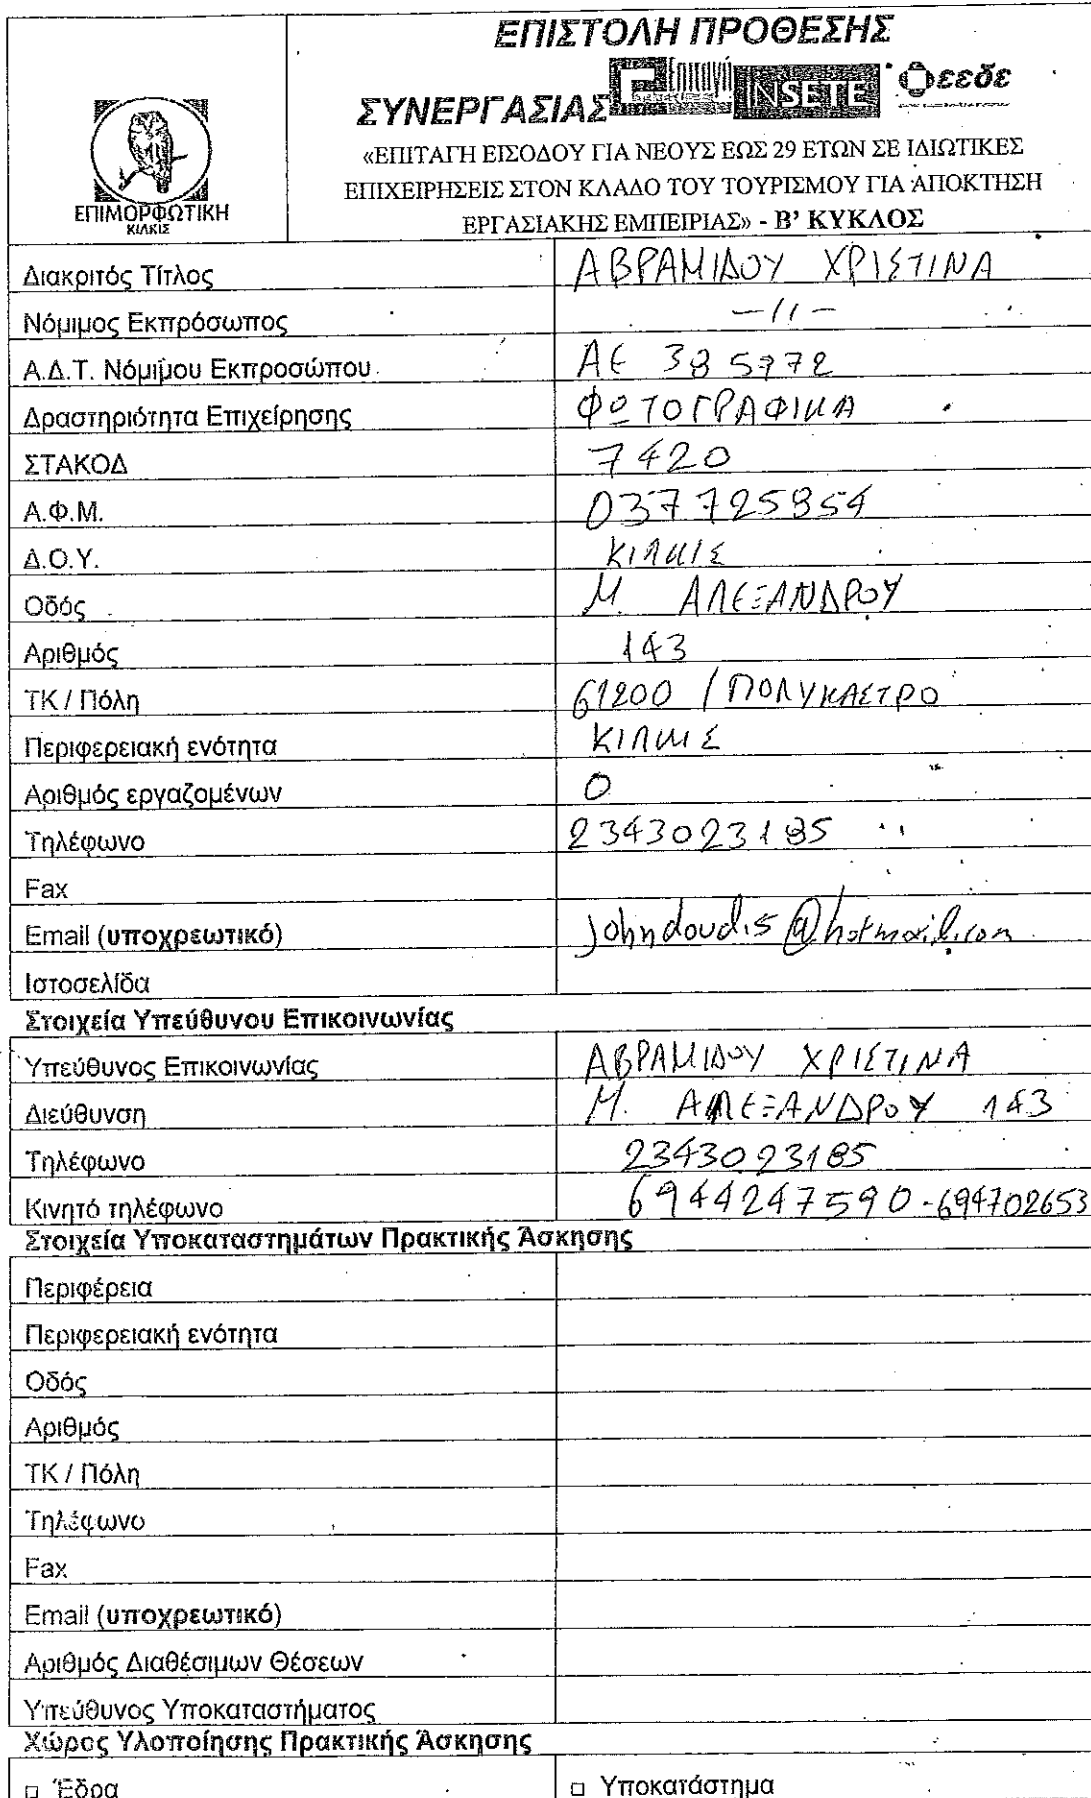 ΕΠΙΣΤΟΛΗ ΠΡΟΘΕΣΗΣ
ΣΥΝΕΡΓΑΣΙΑΣ INSETE εεδε
ΕΠΙΜΟΡΦΩΤΙΚΗ
ΚΙΛΚΙΣ
«ΕΠΙΤΑΓΗ ΕΙΣΟΔΟΥ ΓΙΑ ΝΕΟΥΣ ΕΩΣ 29 ΕΤΩΝ ΣΕ ΙΔΙΩΤΙΚΕΣ
ΕΠΙΧΕΙΡΗΣΕΙΣ ΣΤΟΝ ΚΛΑΔΟ ΤΟΥ ΤΟΥΡΙΣΜΟΥ ΓΙΑ ΑΠΟΚΤΗΣΗ
ΕΡΓΑΣΙΑΚΗΣ ΕΜΠΕΙΡΙΑΣ» - Β' ΚΥΚΛΟΣ
Διακριτός Τίτλος ΑΒΡΑΜΙΔΟΥ ΧΡΙΣΤΙΝΑ
Νόμιμος Εκπρόσωπος -//-
Α.Δ.Τ. Νόμιμου Εκπροσώπου ΑΕ 385772
Δραστηριότητα Επιχείρησης ΦΩΤΟΓΡΑΦΙΚΑ
ΣΤΑΚΟΔ 7420
Α.Φ.Μ. 037725854
Δ.Ο.Υ. ΚΙΛΚΙΣ
Οδός Μ. ΑΛΕΞΑΝΔΡΟΥ
Αριθμός 143
ΤΚ / Πόλη 61200 / ΠΟΛΥΚΑΣΤΡΟ
Περιφερειακή ενότητα ΚΙΛΚΙΣ
Αριθμός εργαζομένων 0
Τηλέφωνο 2343023185
Fax
Email (υποχρεωτικό) johndoudis@hotmail.com
Ιστοσελίδα
Στοιχεία Υπεύθυνου Επικοινωνίας
Υπεύθυνος Επικοινωνίας ΑΒΡΑΜΙΔΟΥ ΧΡΙΣΤΙΝΑ
Διεύθυνση Μ. ΑΛΕΞΑΝΔΡΟΥ 143
Τηλέφωνο 2343023185
Κινητό τηλέφωνο 6944247590-694702653
Στοιχεία Υποκαταστημάτων Πρακτικής Άσκησης
Περιφέρεια
Περιφερειακή ενότητα
Οδός
Αριθμός
ΤΚ / Πόλη
Τηλέφωνο
Fax
Email (υποχρεωτικό)
Αριθμός Διαθέσιμων Θέσεων
Υπεύθυνος Υποκαταστήματος
Χώρος Υλοποίησης Πρακτικής Άσκησης
□ Έδρα □ Υποκατάστημα